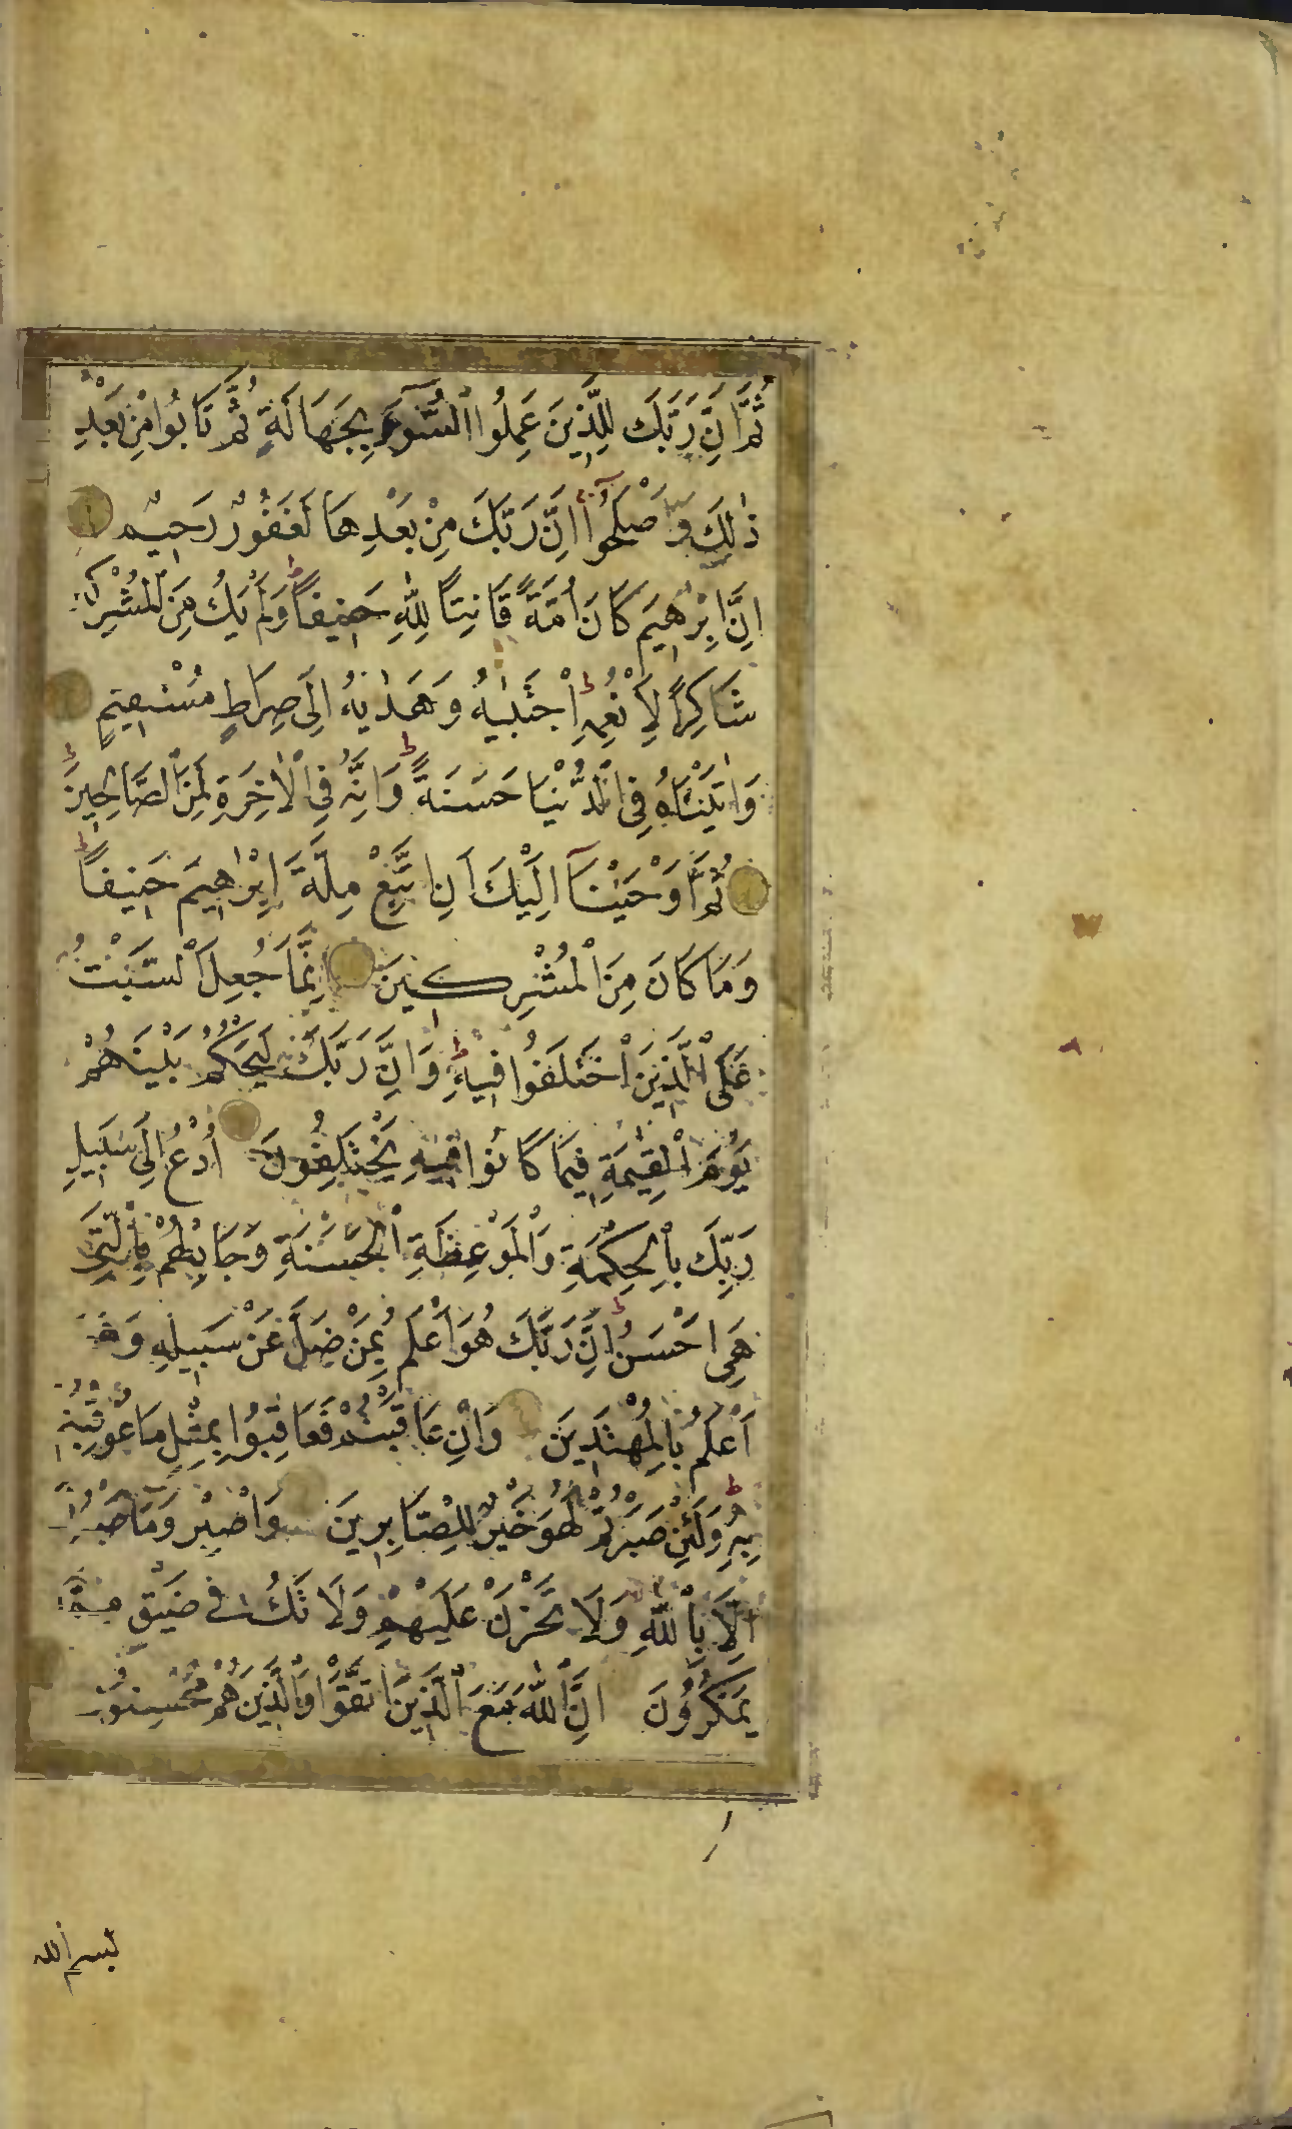 ثُمَّ اِنَّ رَبَّكَ لِلَّذِينَ عَمِلُوا السُّوٓءَ بِجَهَالَةٍ ثُمَّ تَابُوا مِنْ بَعْدِ
ذٰلِكَ وَاَصْلَحُوٓا اِنَّ رَبَّكَ مِنْ بَعْدِهَا لَغَفُورٌ رَحِيمٌ
اِنَّ اِبْرٰهِيمَ كَانَ اُمَّةً قَانِتًا لِلّٰهِ حَنِيفًا وَلَمْ يَكُ مِنَ الْمُشْرِكِينَ
شَاكِرًا لِاَنْعُمِهِ اِجْتَبٰيهُ وَهَدٰيهُ اِلَى صِرَاطٍ مُسْتَقِيمٍ
وَاٰتَيْنَاهُ فِي الدُّنْيَا حَسَنَةً وَاِنَّهُ فِي الْاٰخِرَةِ لَمِنَ الصَّالِحِينَ
ثُمَّ اَوْحَيْنَآ اِلَيْكَ اَنِ اتَّبِعْ مِلَّةَ اِبْرٰهِيمَ حَنِيفًا
وَمَا كَانَ مِنَ الْمُشْرِكِينَ اِنَّمَا جُعِلَ السَّبْتُ
عَلَى الَّذِينَ اخْتَلَفُوا فِيهِ وَاِنَّ رَبَّكَ لَيَحْكُمُ بَيْنَهُمْ
يَوْمَ الْقِيٰمَةِ فِيمَا كَانُوا فِيهِ يَخْتَلِفُونَ اُدْعُ اِلَى سَبِيلِ
رَبِّكَ بِالْحِكْمَةِ وَالْمَوْعِظَةِ الْحَسَنَةِ وَجَادِلْهُمْ بِالَّتِي
هِيَ اَحْسَنُ اِنَّ رَبَّكَ هُوَ اَعْلَمُ بِمَنْ ضَلَّ عَنْ سَبِيلِهِ وَهُوَ
اَعْلَمُ بِالْمُهْتَدِينَ وَاِنْ عَاقَبْتُمْ فَعَاقِبُوا بِمِثْلِ مَا عُوقِبْتُمْ
بِهِ وَلَئِنْ صَبَرْتُمْ لَهُوَ خَيْرٌ لِلصَّابِرِينَ وَاصْبِرْ وَمَا صَبْرُكَ
اِلَّا بِاللّٰهِ وَلَا تَحْزَنْ عَلَيْهِمْ وَلَا تَكُ فِي ضَيْقٍ مِمَّا
يَمْكُرُونَ اِنَّ اللّٰهَ مَعَ الَّذِينَ اتَّقَوْا وَالَّذِينَ هُمْ مُحْسِنُونَ
بسم الله